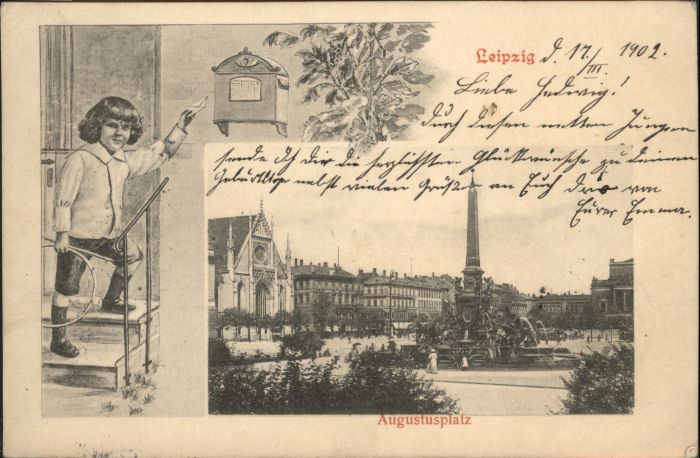 Leipzig d. 17./III. 1902.
Liebe Hedwig!
Durch diesen netten Jungen
sende ich Dir die herzlichsten Glückwünsche zu Deinem
Geburtstage nebst vielen Grüßen an Euch von
Eurer Emma.
Augustusplatz